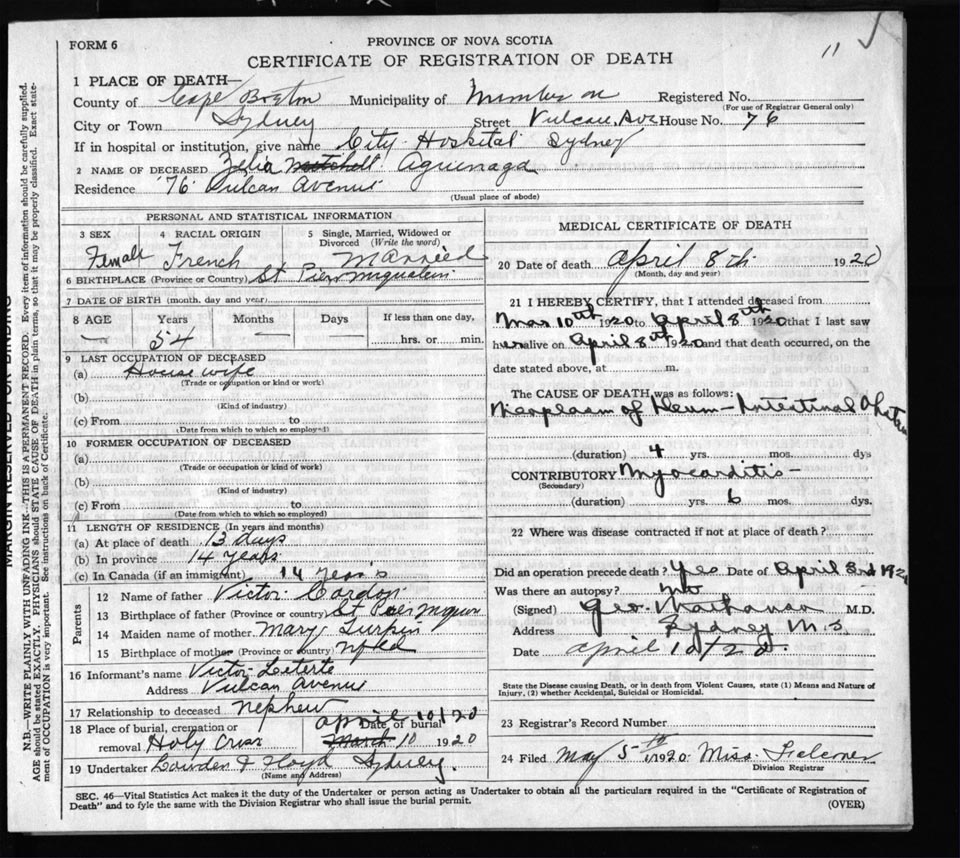 FORM 6
PROVINCE OF NOVA SCOTIA
11
CERTIFICATE OF REGISTRATION OF DEATH
1 PLACE OF DEATH—
County of Cape Breton Municipality of Number on Registered No.
(For use of Registrar General only)
City or Town Sydney Street Vulcan. Ave House No. 76
If in hospital or institution, give name City Hospital Sydney
2 NAME OF DECEASED Zelia Mitchell Aguinaga
Residence '76' Vulcan Avenue
(Usual place of abode)
PERSONAL AND STATISTICAL INFORMATION
3 SEX Female
4 RACIAL ORIGIN French
5 Single, Married, Widowed or Divorced (Write the word) Married
6 BIRTHPLACE (Province or Country) St Pier Miquelein
7 DATE OF BIRTH (month, day and year)
8 AGE Years Months Days If less than one day,
— 54 — — hrs. or min.
9 LAST OCCUPATION OF DECEASED
(a) House wife
(Trade or occupation or kind or work)
(b)
(Kind of industry)
(c) From to
(Date from which to which so employed)
10 FORMER OCCUPATION OF DECEASED
(a)
(Trade or occupation or kind of work)
(b)
(Kind of industry)
(c) From to
(Date from which to which so employed)
11 LENGTH OF RESIDENCE (In years and months)
(a) At place of death 13 days
(b) In province 14 years
(c) In Canada (if an immigrant) 14 years
Parents
12 Name of father Victor Cordon
13 Birthplace of father (Province or country) St Pier Miquin
14 Maiden name of mother Mary Turpin
15 Birthplace of mother (Province or country) nfld
16 Informant's name Victor Leterte
Address Vulcan Avenue
17 Relationship to deceased nephew
18 Place of burial, cremation or Date of burial April 10/20
removal Holy Cross March 10 1920
19 Undertaker Lowden & Floyd Sydney.
(Name and Address)
MEDICAL CERTIFICATE OF DEATH
20 Date of death April 8th 1920
(Month, day and year)
21 I HEREBY CERTIFY, that I attended deceased from
Mar 10th 1920 to April 8th 1920 that I last saw
her alive on April 8th 1920 and that death occurred, on the
date stated above, at m.
The CAUSE OF DEATH was as follows:
Neoplasm of Ileum — Intestinal
(duration) 4 yrs. mos. dys
CONTRIBUTORY Myocarditis —
(Secondary)
(duration) yrs. 6 mos. dys.
22 Where was disease contracted if not at place of death?
Did an operation precede death? Yes Date of April 3rd 1920
Was there an autopsy? no
(Signed) Geo. M.D.
Address Sydney N.S
Date April 10/20.
State the Disease causing Death, or in death from Violent Causes, state (1) Means and Nature of
Injury, (2) whether Accidental, Suicidal or Homicidal.
23 Registrar's Record Number
24 Filed May 5th 1920 Miss Falconer
Division Registrar
SEC. 46—Vital Statistics Act makes it the duty of the Undertaker or person acting as Undertaker to obtain all the particulars required in the "Certificate of Registration of
Death" and to fyle the same with the Division Registrar who shall issue the burial permit.
(OVER)
MARGIN RESERVED FOR BINDING
N.B.—WRITE PLAINLY WITH UNFADING INK—THIS IS A PERMANENT RECORD. Every item of information should be carefully supplied.
AGE should be stated EXACTLY. PHYSICIANS should STATE CAUSE OF DEATH in plain terms, so that it may be properly classified. Exact state-
ment of OCCUPATION is very important. See instructions on back of Certificate.